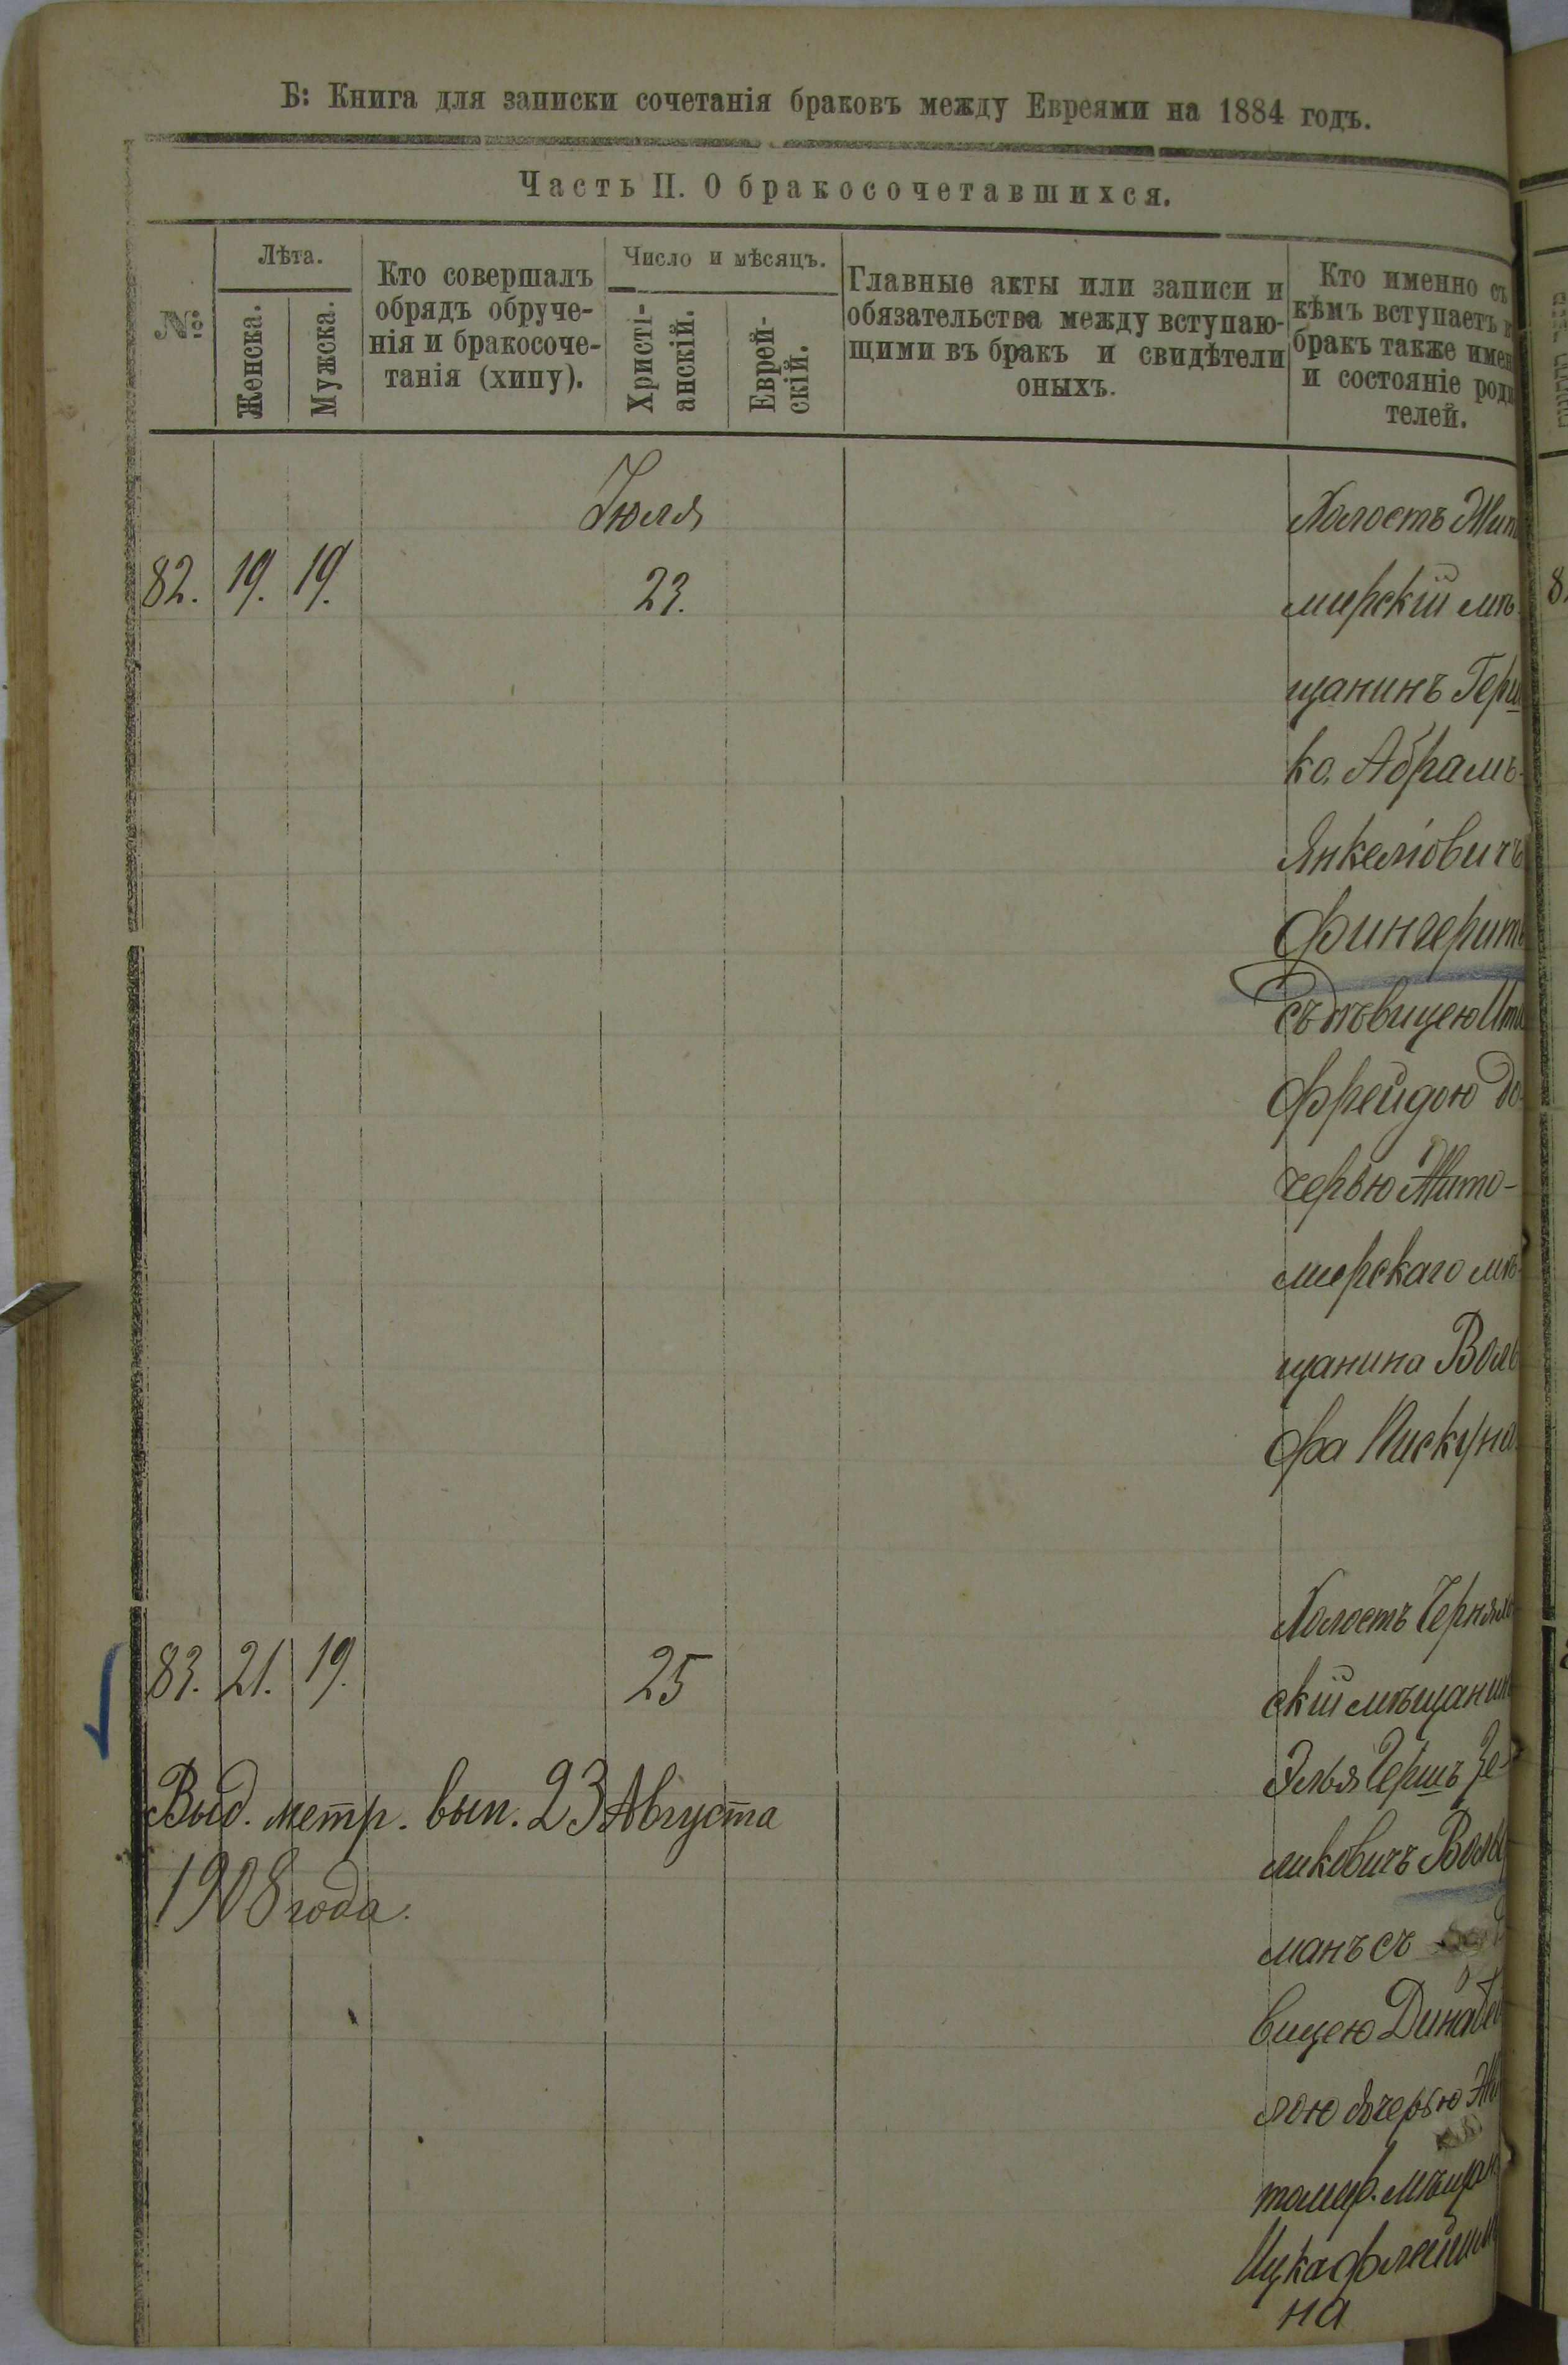 Б: Книга для записки сочетанія браковъ между Евреями на 1884 годъ.
Часть II. О бракосочетавшихся.
№
Лѣта.
Женска.
Мужска.
Кто совершалъ
обрядъ обруче-
нія и бракосоче-
танія (хипу).
Число и мѣсяцъ.
Христі-
анскій.
Еврей-
скій.
Главные акты или записи и
обязательства между вступаю-
щими въ бракъ и свидѣтели
оныхъ.
Кто именно съ
кѣмъ вступаетъ
бракъ также имен
и состояніе роди
телей.
Іюля
82. 19. 19. 23.
Холостъ Жит
мирскій мѣ-
щанинъ Герш
ко Абрамъ-
Янкеліовичъ
Фингеритъ
съ дѣвицею
Фрейдою до-
черью Жито-
мирскаго мѣ-
щанина Воль
фа Пискуна.
83. 21. 19. 25
Холостъ Чернях
скій мѣщанин
Элья Гершъ Зе-
ликовичъ Воль
манъ съ
вицею Дина
лою дочерью Жи
томир. мѣщан
Ицка Флейшма
на
Выд. метр. вып. 23 Августа
1908 года.